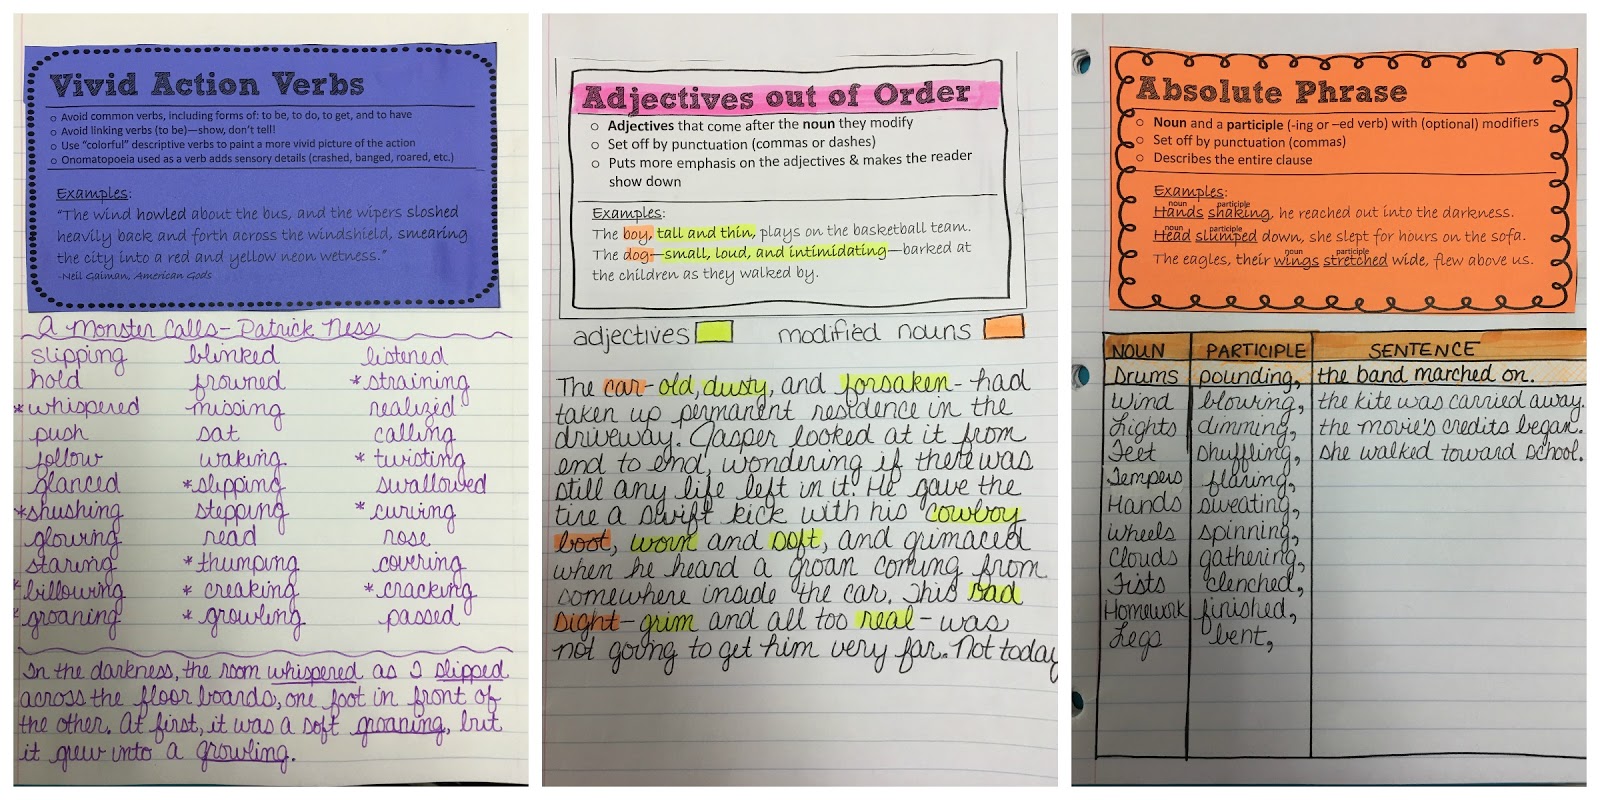 Vivid Action Verbs
o Avoid common verbs, including forms of: to be, to do, to get, and to have
o Avoid linking verbs (to be)—show, don't tell!
o Use "colorful" descriptive verbs to paint a more vivid picture of the action
o Onomatopoeia used as a verb adds sensory details (crashed, banged, roared, etc.)
Examples:
"The wind howled about the bus, and the wipers sloshed
heavily back and forth across the windshield, smearing
the city into a red and yellow neon wetness."
-Neil Gaiman, American Gods
A Monster Calls - Patrick Ness
slipping blinked listened
hold frowned *straining
*whispered missing realized
push sat calling
follow waking *twisting
glanced *slipping swallowed
*shushing stepping *curving
glowing read rose
staring *thumping covering
*billowing *creaking *cracking
*groaning *growling passed
In the darkness, the room whispered as I slipped
across the floor boards, one foot in front of
the other. At first, it was a soft groaning, but
it grew into a growling.
Adjectives out of Order
o Adjectives that come after the noun they modify
o Set off by punctuation (commas or dashes)
o Puts more emphasis on the adjectives & makes the reader
show down
Examples:
The boy, tall and thin, plays on the basketball team.
The dog—small, loud, and intimidating—barked at
the children as they walked by.
adjectives modified nouns
The car-old, dusty, and forsaken-had
taken up permanent residence in the
driveway. Jasper looked at it from
end to end, wondering if there was
still any life left in it. He gave the
tire a swift kick with his cowboy
boot, worn and soft, and grimaced
when he heard a groan coming from
somewhere inside the car. This sad
sight-grim and all too real-was
not going to get him very far. Not today
Absolute Phrase
o Noun and a participle (-ing or –ed verb) with (optional) modifiers
o Set off by punctuation (commas)
o Describes the entire clause
Examples:
noun participle
Hands shaking, he reached out into the darkness.
noun participle
Head slumped down, she slept for hours on the sofa.
noun participle
The eagles, their wings stretched wide, flew above us.
NOUN PARTICIPLE SENTENCE
Drums pounding, the band marched on.
Wind blowing, the kite was carried away.
Lights dimming, the movie's credits began.
Feet shuffling, she walked toward school.
Tempers flaring,
Hands sweating,
Wheels spinning,
Clouds gathering,
Fists clenched,
Homework finished,
Legs bent,